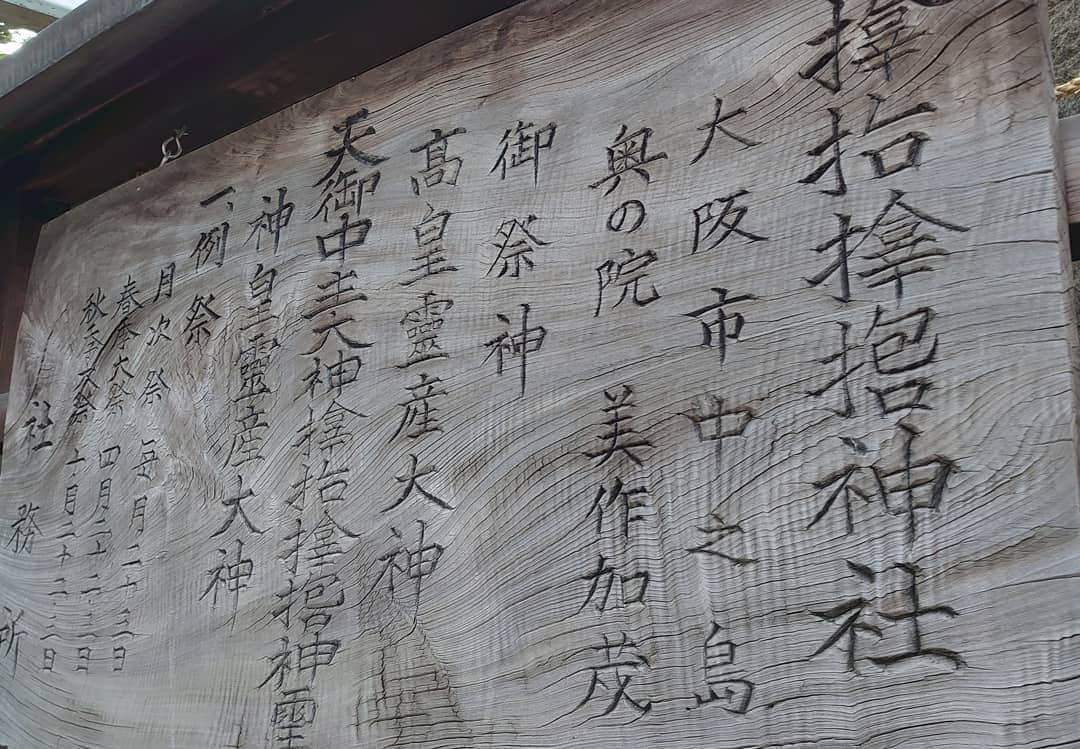 𢮦抬𢮦𪮇神社
大阪市中之島
奥の院 美作加茂
御祭神
髙皇靈産大神
天御中主大神𢮦抬𢮦𪮇神霊
神皇靈産大神
一、例祭
月次祭 毎月二十三日
春季大祭 四月二十二・三日
秋季大祭 十月二十二・三日
社務所